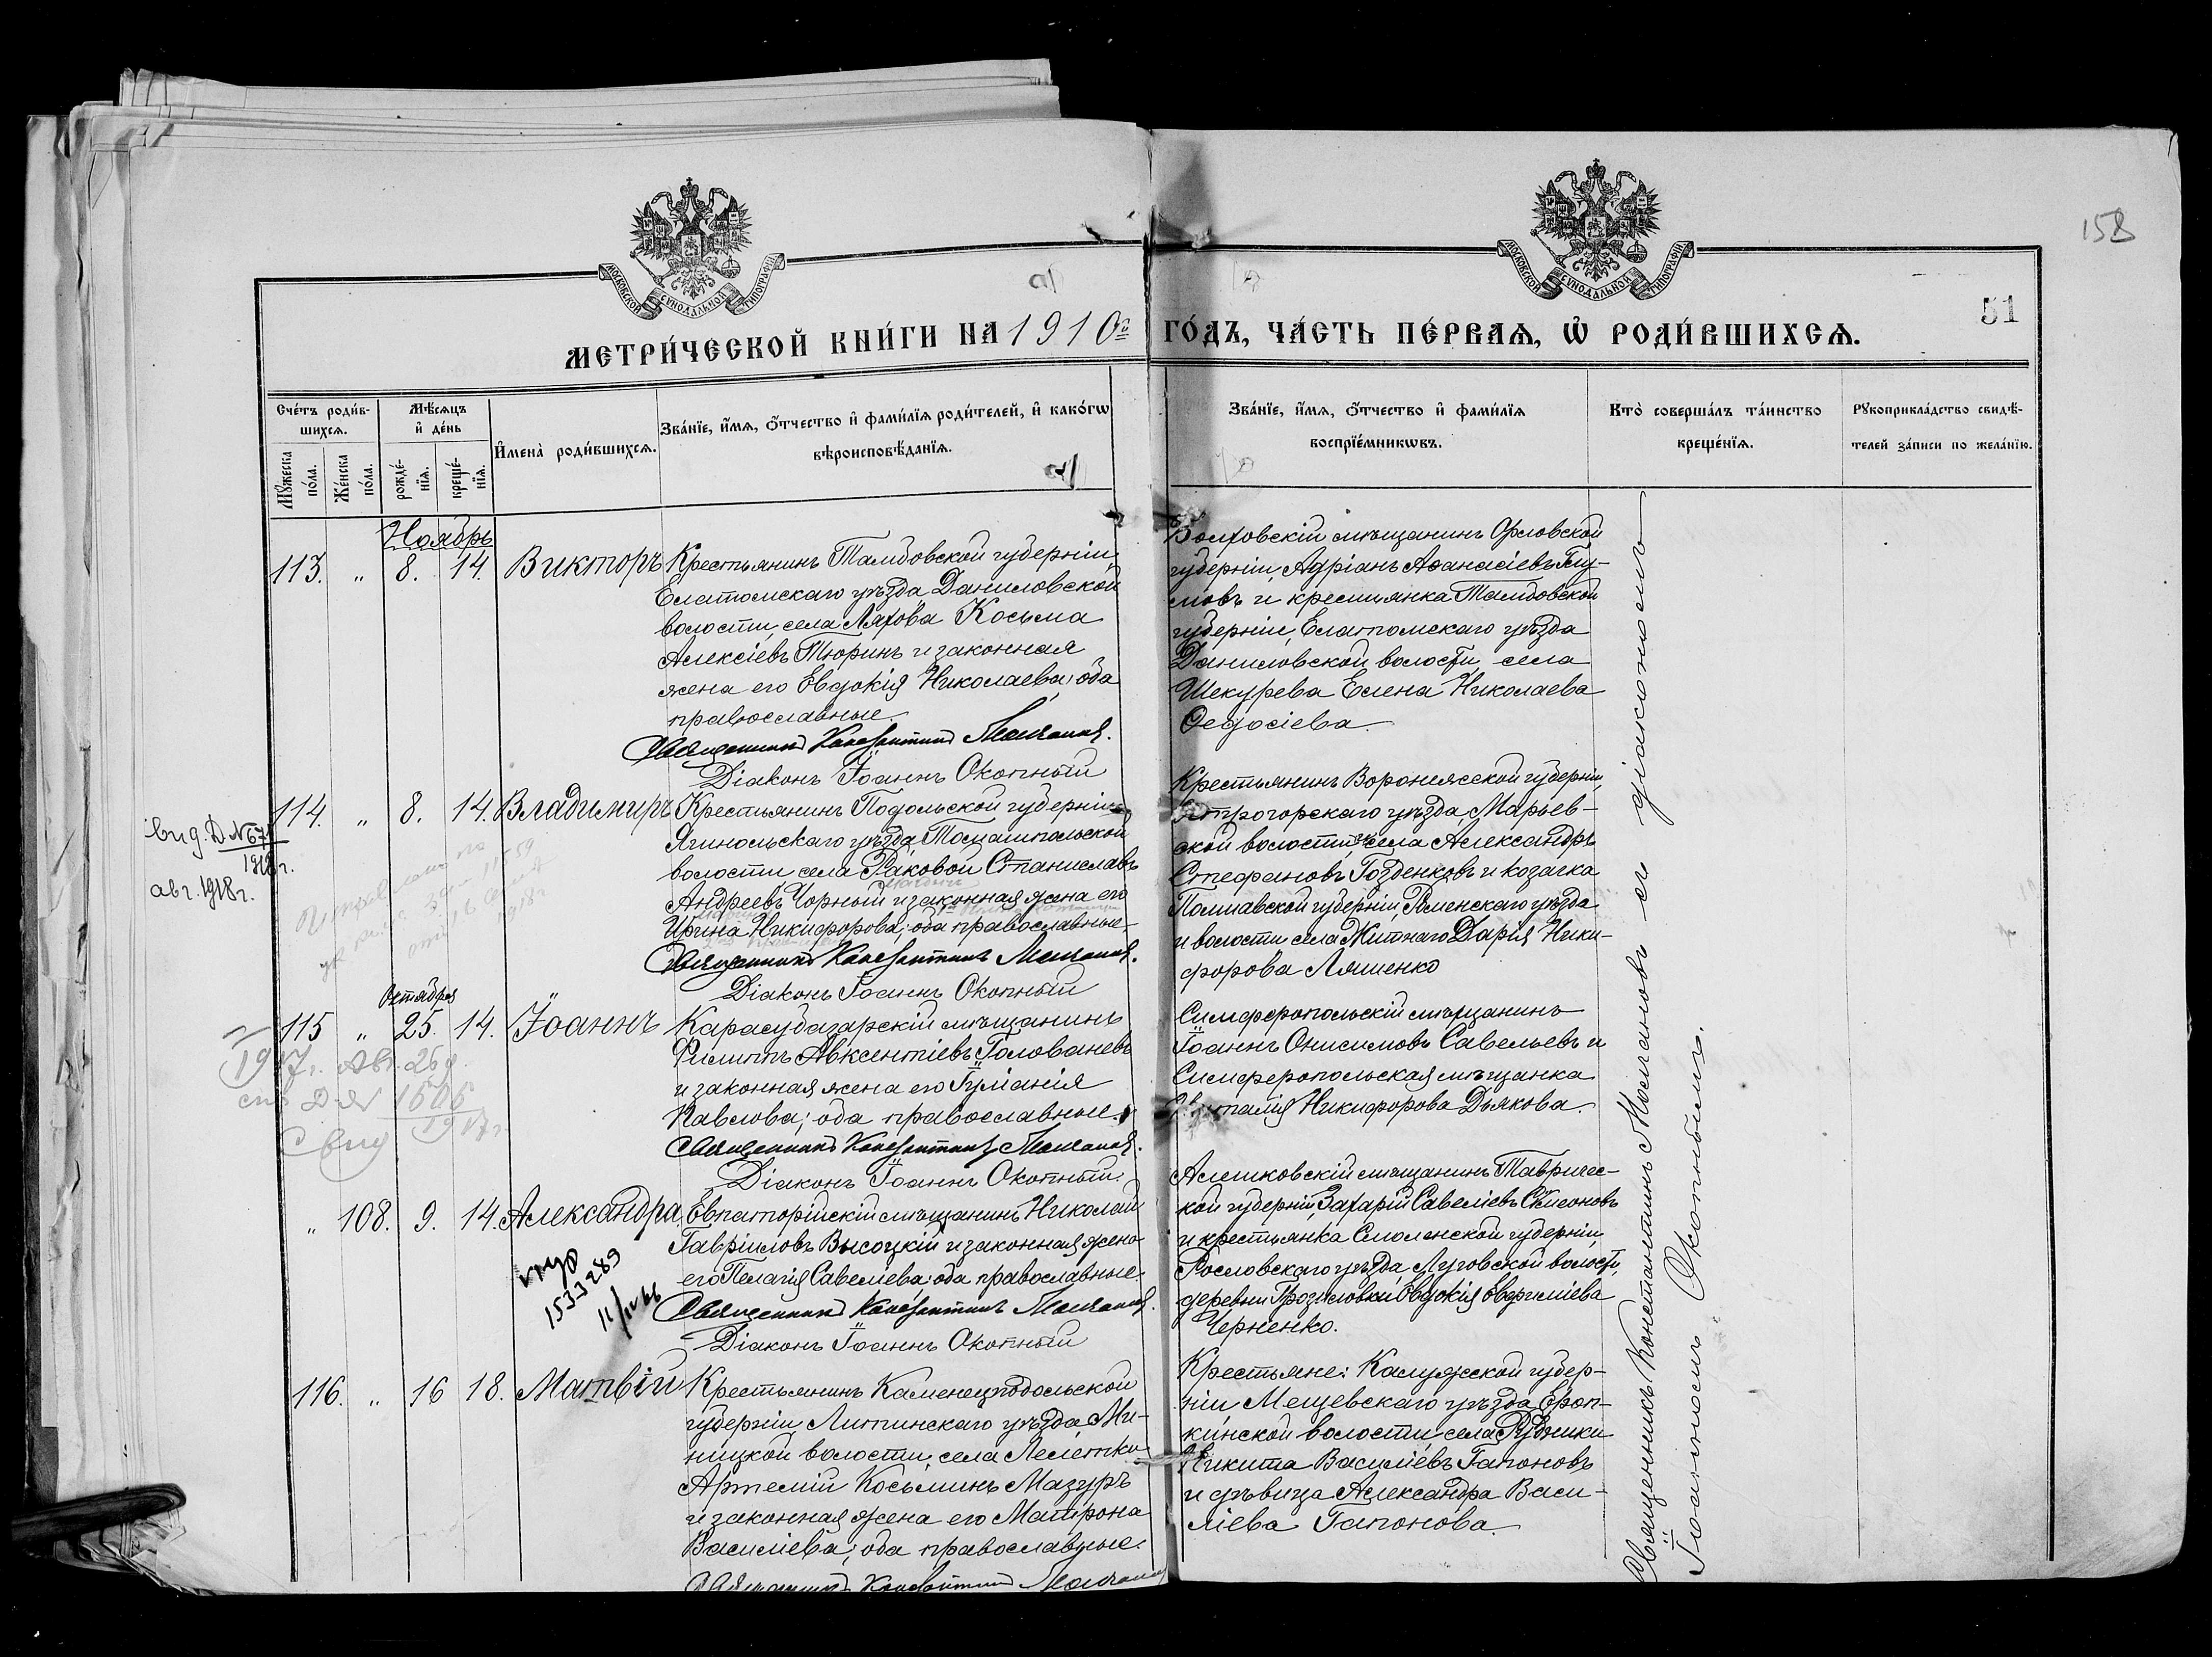 158
51
МОСКОВСКОЙ СѴНОДАЛЬНОЙ ТИПОГРАФІИ
МОСКОВСКОЙ СѴНОДАЛЬНОЙ ТИПОГРАФІИ
МЕТРИ́ЧЕСКОЙ КНИ́ГИ НА 1910й ГО́ДЪ, ЧА́СТЬ ПЕ́РВАѦ, Ѡ҆ РОДИ́ВШИХСѦ.
Сче́тъ роди́в-
шихсѧ.
Мꙋ́жеска по́ла.
Же́нска по́ла.
Мѣ́сѧцъ
и҆ де́нь
рожде́-
нїѧ.
креще́-
нїѧ.
И҆мена̀ роди́вшихсѧ.
Зва́нїе, и҆́мѧ, ѻ҆́тчество и҆ фами́лїѧ роди́телей, и҆ како́гѡ
вѣроисповѣ́данїѧ.
Зва́нїе, и҆́мѧ, ѻ҆́тчество и҆ фами́лїѧ
воспрїе́мникѡвъ.
Кто̀ соверша́лъ та́инство
креще́нїѧ.
Рꙋкоприкла́дство свидѣ́-
телей за́писи по жела́нїю.
Ноябрь
113. " 8. 14. Викторъ
Крестьянинъ Тамбовской губерніи,
Елатомскаго уѣзда, Даниловской
волости, села Ляхова Косьма
Алексіевъ Тюринъ и законная
жена его Евдокія Николаева; оба
православные.
Священникъ Константинъ
Діаконъ Іоаннъ Окопный
Болховскій мѣщанинъ Орловской
губерніи, Адріанъ Аѳанасіевъ
и крестьянка Тамбовской
губерніи, Елатомскаго уѣзда
Даниловской волости, села
Шекурева Елена Николаева
Ѳедосіева.
вид. Д №
1918 г.
авг. 1918 г.
114. " 8. 14. Владимиръ
Крестьянинъ Подольской губерніи
Ямпольскаго уѣзда, Томашпольской
волости села Раковой Станиславъ
Андреевъ Чорный и законная жена его
Ирина Никифорова; оба православные.
Священникъ Константинъ
Діаконъ Іоаннъ Окопный
Крестьянинъ Воронежской губерніи,
Острогорскаго уѣзда, Марьев-
ской волости, села Александръ
Стефановъ Гозденковъ и козачка
Полтавской губерніи, Роменскаго уѣзда
и волости села Житнаго Дарія Ники-
форова Ляшенко
Октября
115 " 25. 14. Іоаннъ
Карасубазарскій мѣщанинъ
Филиппъ Авксентіевъ Голованевъ
и законная жена его Іуліанія
Павлова; оба православные.
Священникъ Константинъ
Діаконъ Іоаннъ Окопный.
1917 г. Авг. 26 д.
Симферопольскій мѣщанинъ
Іоаннъ Онисимовъ Савельевъ и
Симферопольская мѣщанка
Никифорова Дьякова.
" 108. 9. 14. Александра
Евпаторійскій мѣщанинъ Николай
Гавріиловъ Высоцкій и законная жена
его Пелагія Савеліева; оба православные.
Священникъ Константинъ
Діаконъ Іоаннъ Окопный
1533289
11/IV 66
Алешковскій мѣщанинъ Тавричес-
кой губерніи, Захарій Савеліевъ Сѵмеоновъ
и крестьянка Смоленской губерніи,
Рославскаго уѣзда, Луговской волости,
деревни Грозиловки Евдокія
Черненко.
116. " 16 18. Матвій
Крестьянинъ Каменецподольской
губерніи Литинскаго уѣзда, Ми-
ницкой волости, села Лелетки
Артемій Косьминъ Мазуръ
и законная жена его Матрона
Василіева; оба православные.
Священникъ Константинъ
Крестьяне: Калужской губер-
ніи Мещевскаго уѣзда, Ероп-
кинской волости, села Рудники
Никита Василіевъ Гапоновъ
и дѣвица Александра Васи-
ліева Гапонова.
Священникъ Константинъ съ діакономъ
Іоанномъ Окопнымъ.